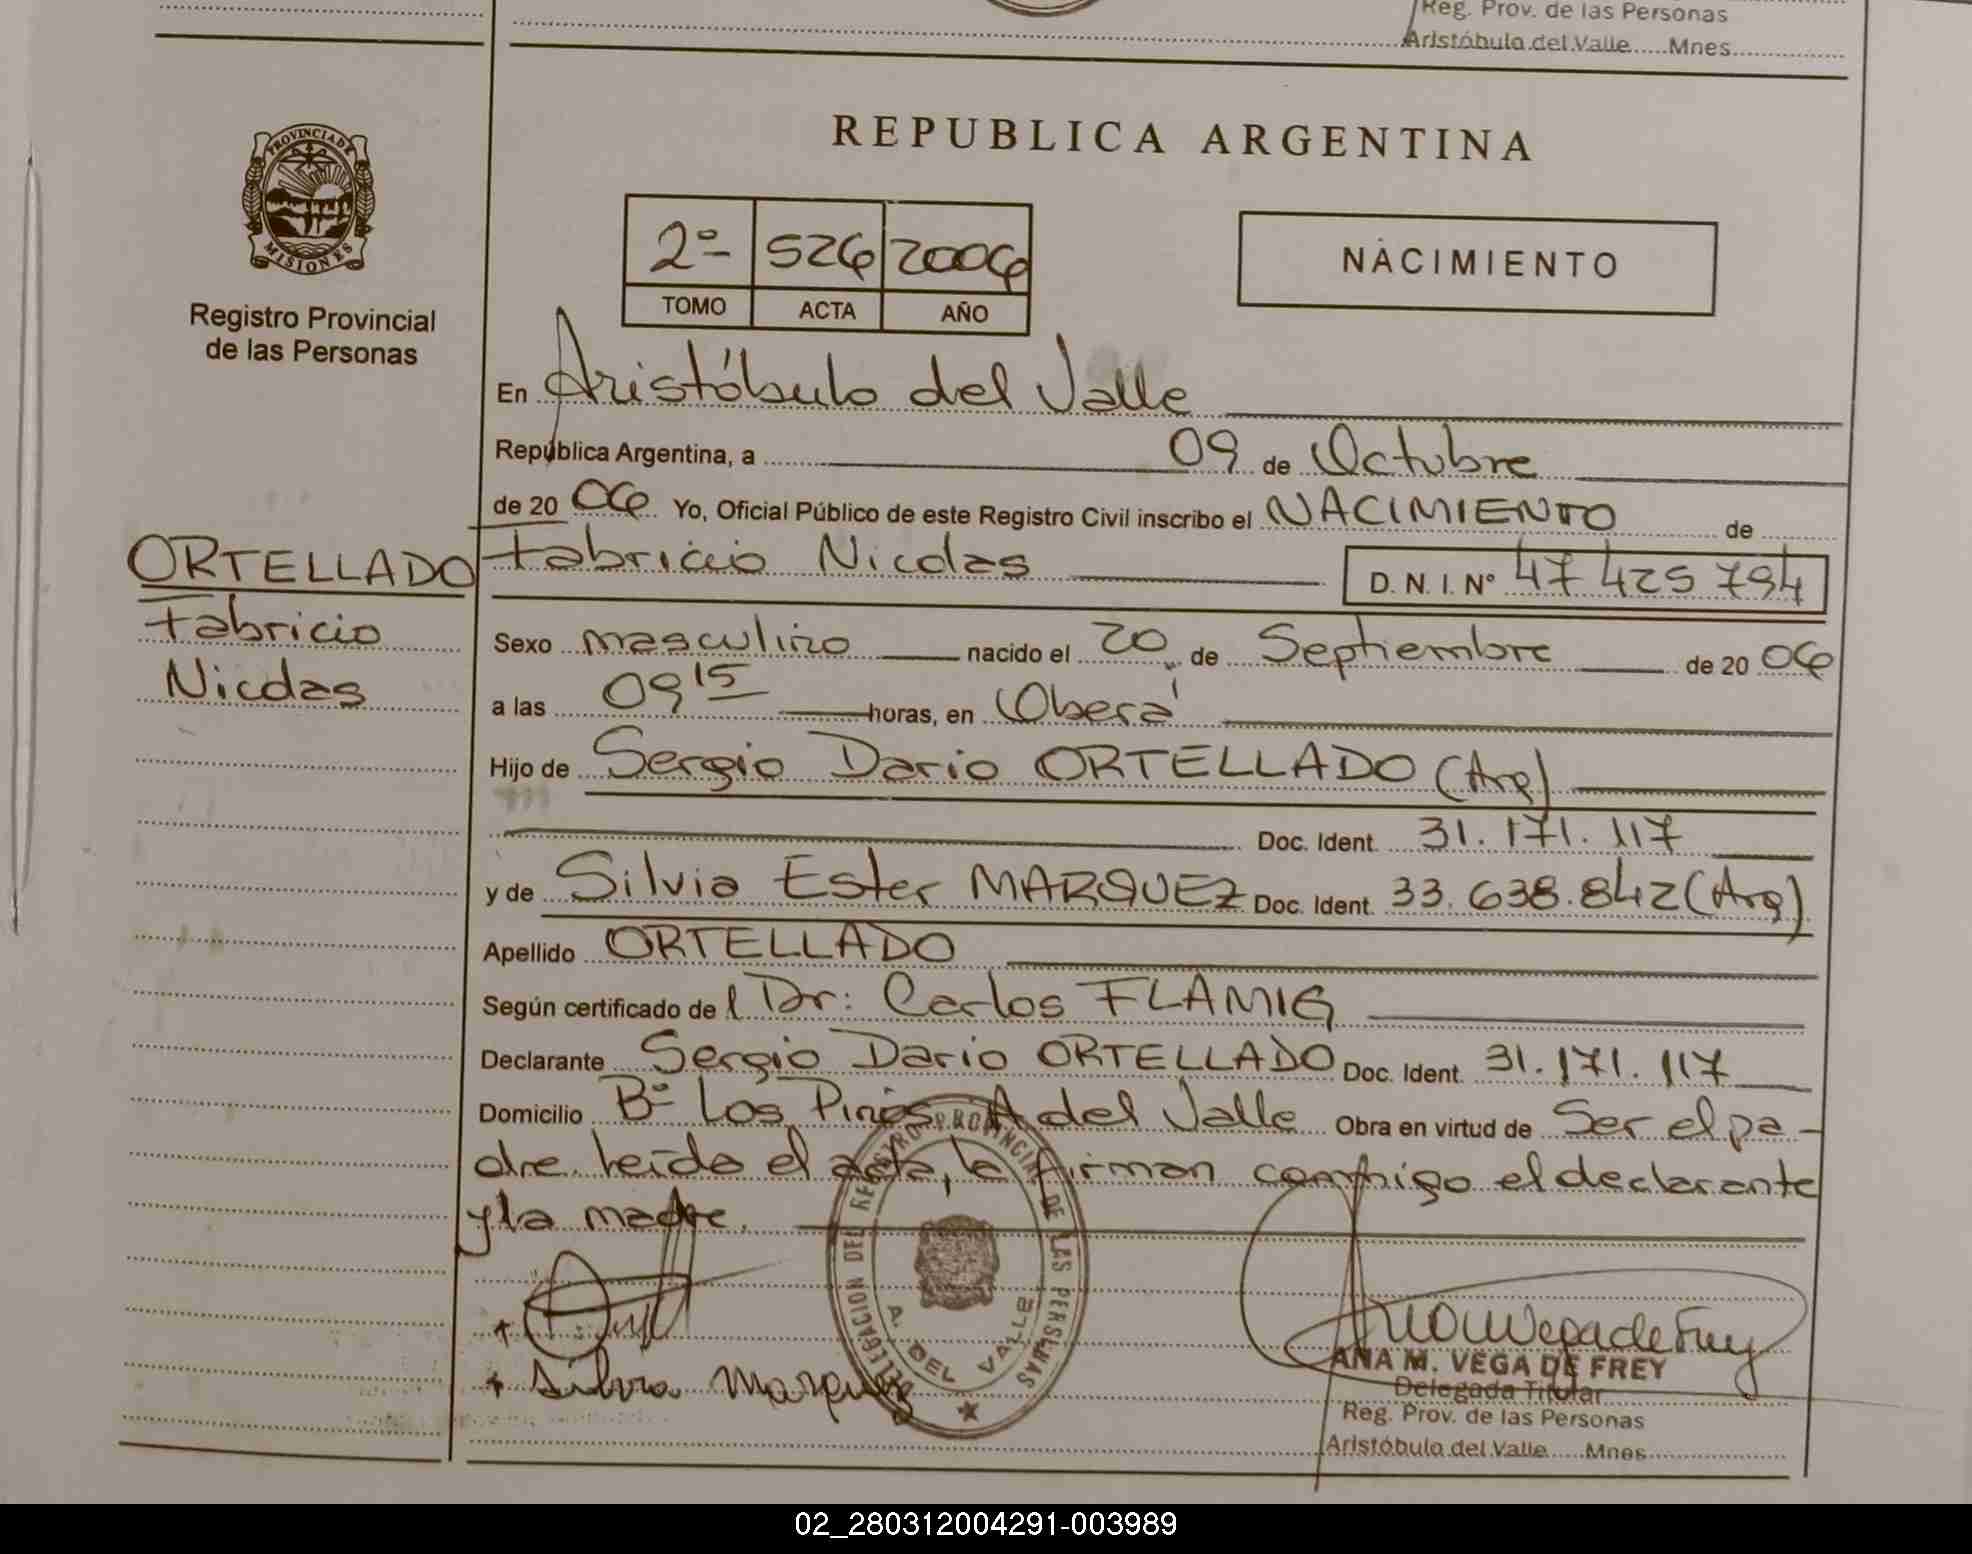 Reg. Prov. de las Personas
Aristóbulo del Valle Mnes
PROVINCIA DE
MISIONES
Registro Provincial
de las Personas
REPUBLICA ARGENTINA
2º 526 2006
TOMO ACTA AÑO
NACIMIENTO
En Aristóbulo del Valle
República Argentina, a 09 de Octubre
de 20 06 Yo, Oficial Público de este Registro Civil inscribo el NACIMIENTO de
ORTELLADO
Fabricio
Nicolas
Fabricio Nicolas D. N. I. Nº 47 425 794
Sexo masculino nacido el 20 de Septiembre de 20 06
a las 09 15 horas, en Oberá
Hijo de Sergio Dario ORTELLADO (Arg)
Doc. Ident. 31.171.117
y de Silvia Ester MARQUEZ Doc. Ident. 33.638.842 (Arg)
Apellido ORTELLADO
Según certificado de l Dr: Carlos FLAMIG
Declarante Sergio Dario ORTELLADO Doc. Ident. 31.171.117
Domicilio Bº Los Pinos A del Valle Obra en virtud de Ser el pa-
dre. Leida el acta, la firman conmigo el declarante
y la madre.
DELEGACION DEL REGISTRO PROVINCIAL DE LAS PERSONAS
A. DEL VALLE
Silvia Marquez
Ana M Vega de Frey
ANA M. VEGA DE FREY
Delegada Titular
Reg. Prov. de las Personas
Aristóbulo del Valle Mnes
02_280312004291-003989